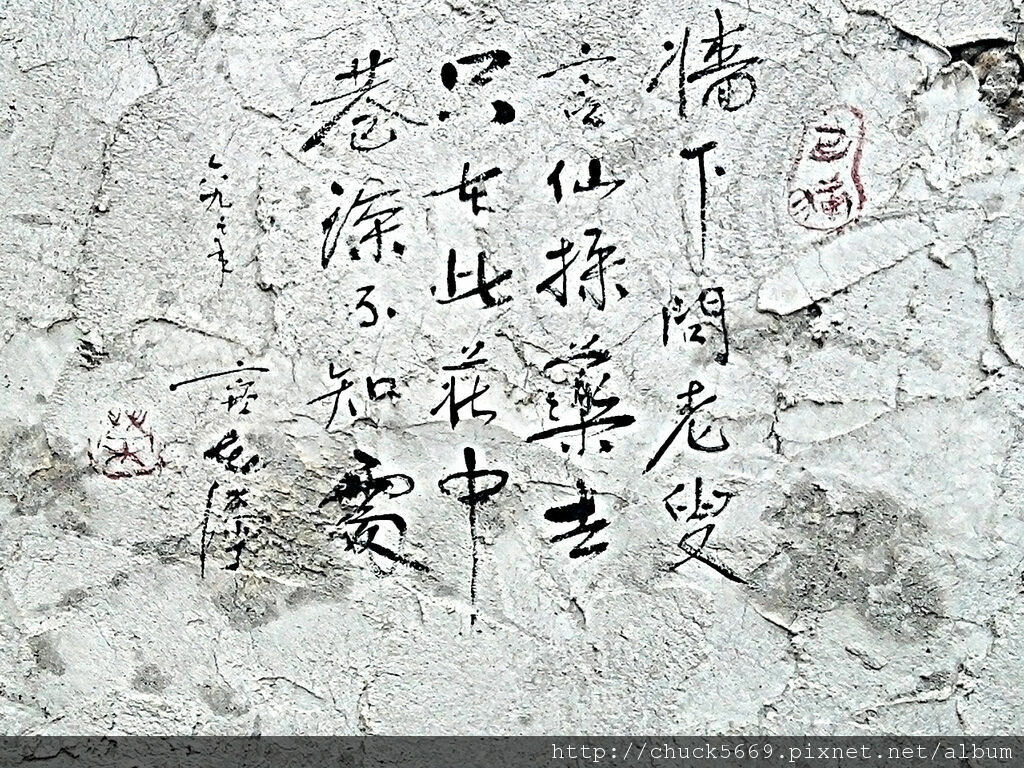 牆下問老叟
言仙採藥去
只在此莊中
巷深不知處
http://chuck5669.pixnet.net/album